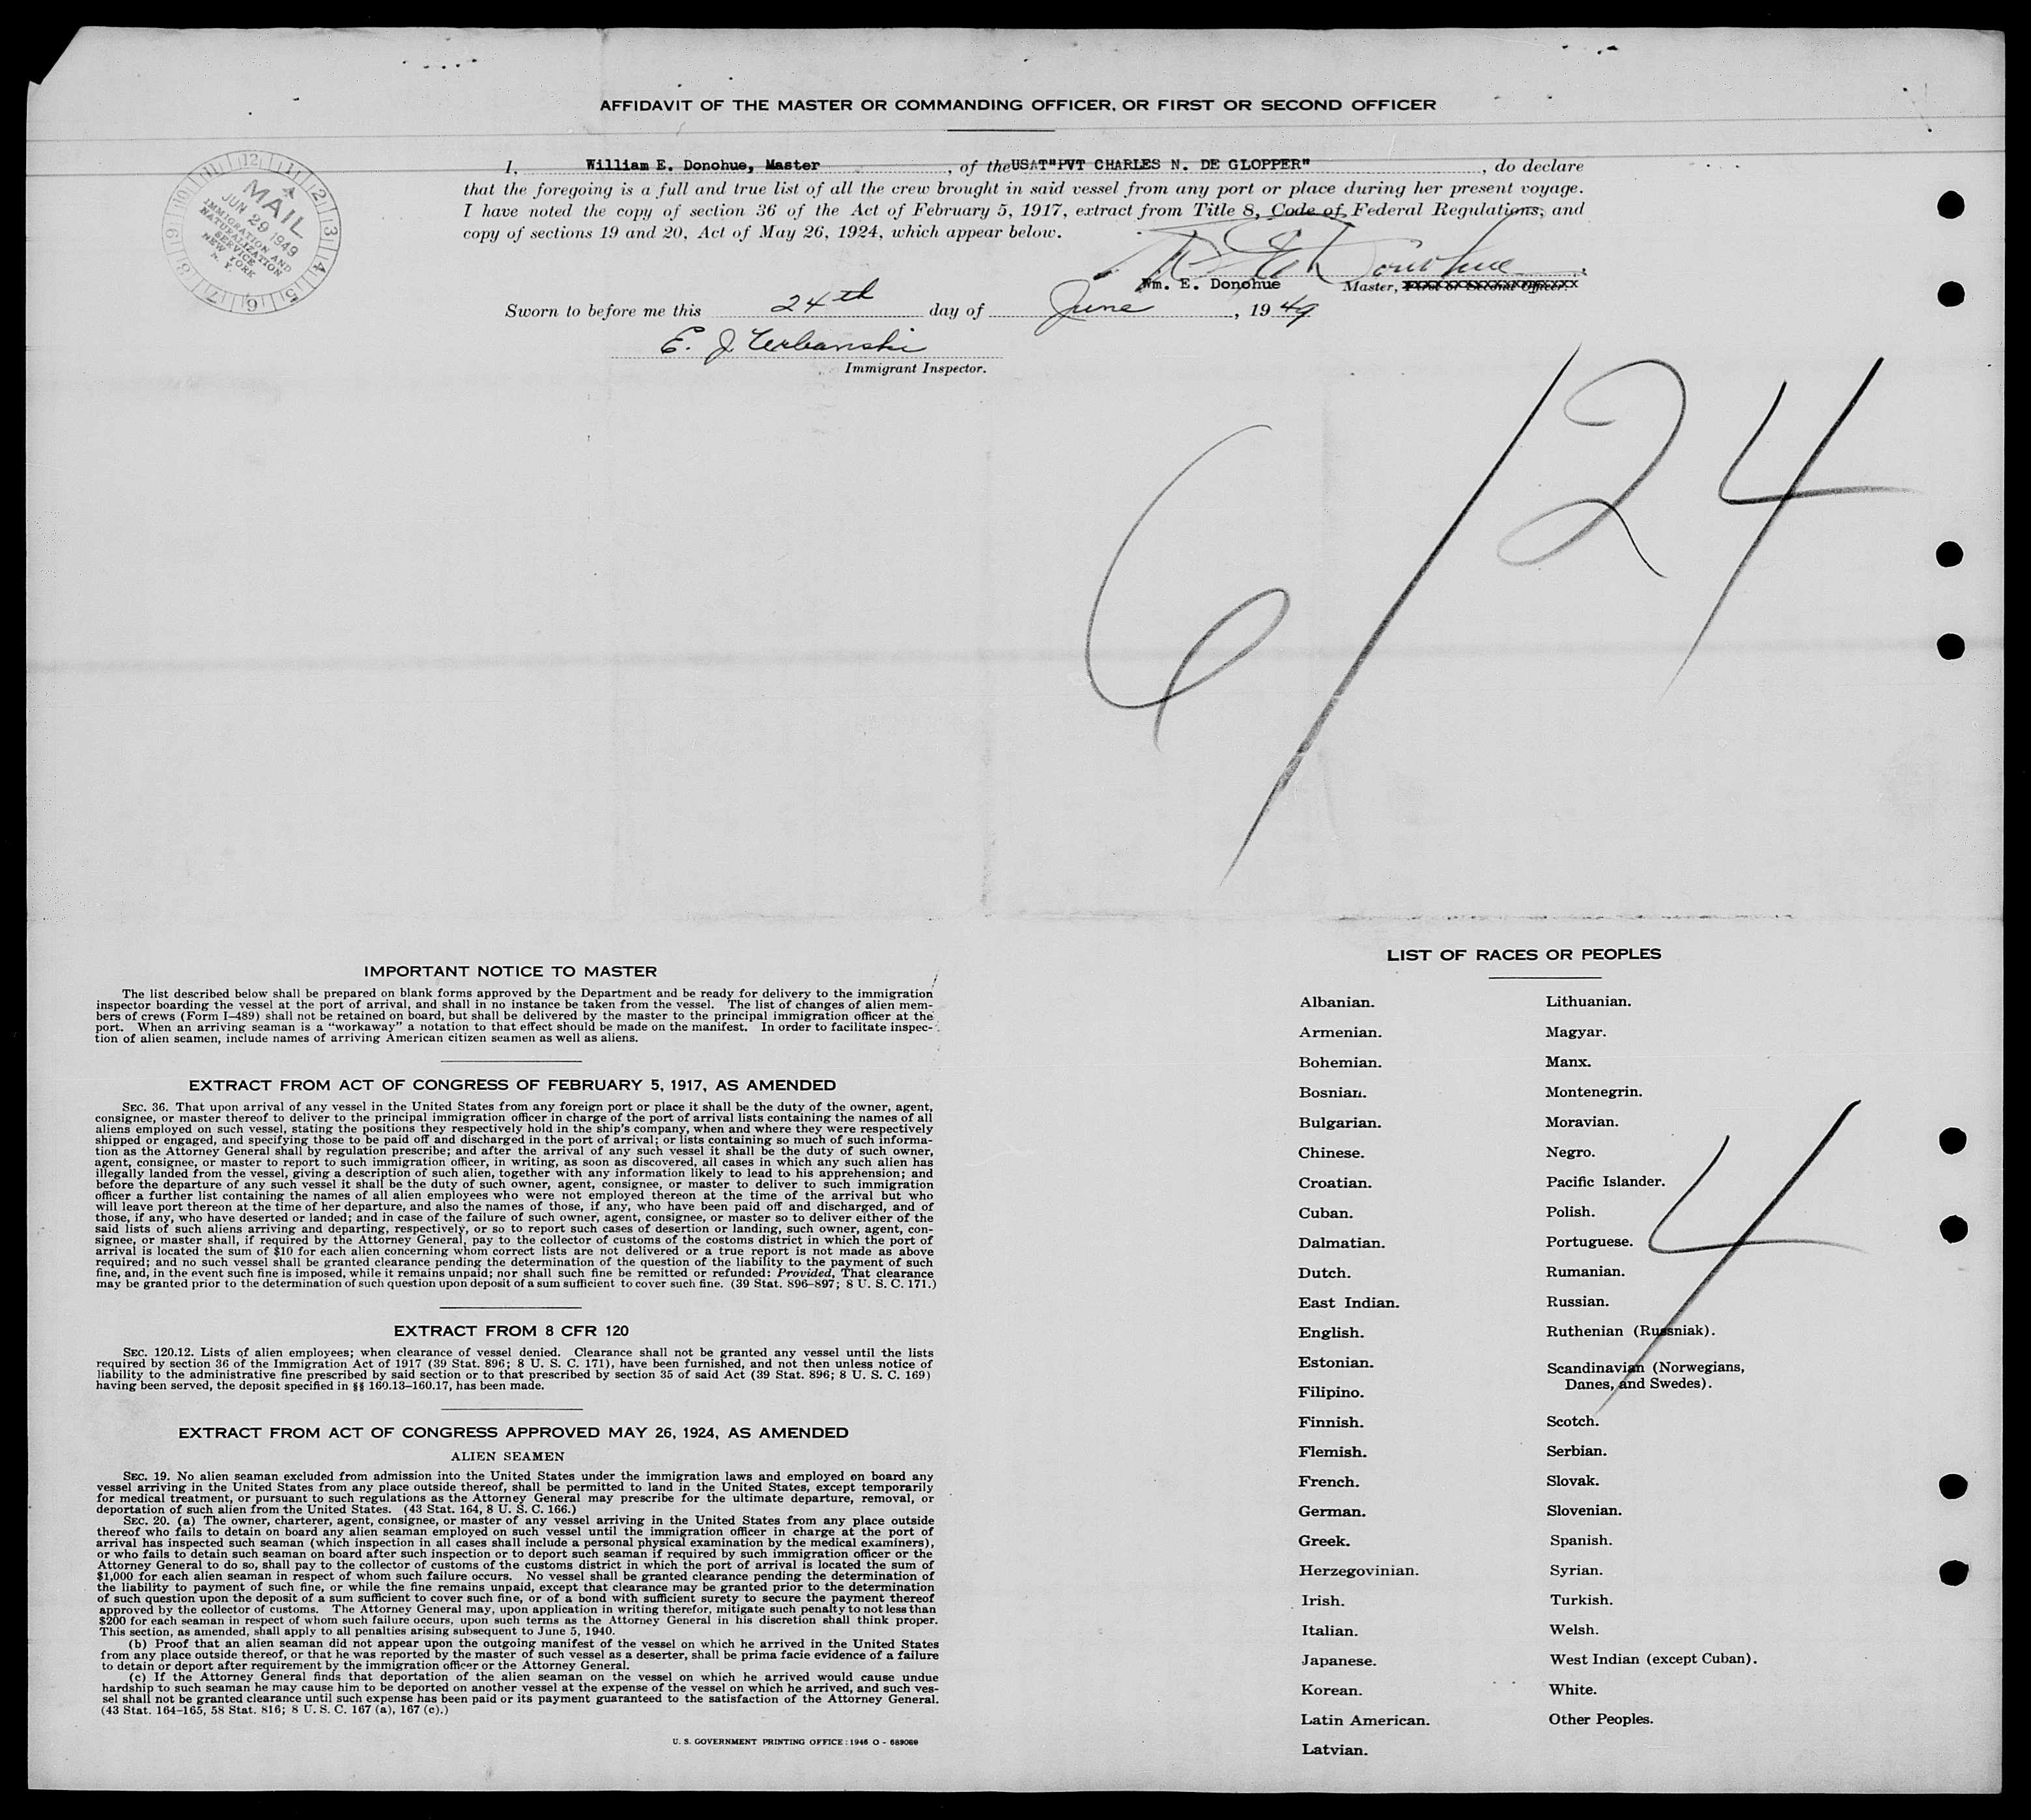 AFFIDAVIT OF THE MASTER OR COMMANDING OFFICER, OR FIRST OR SECOND OFFICER
12 1 2 3 4 5 6 7 8 9 10 11
MAIL
JUN 29 1949
IMMIGRATION AND
NATURALIZATION
SERVICE
NEW YORK
N. Y.
I, William E. Donohue, Master, of the USAT "PVT CHARLES N. DE GLOPPER", do declare
that the foregoing is a full and true list of all the crew brought in said vessel from any port or place during her present voyage.
I have noted the copy of section 36 of the Act of February 5, 1917, extract from Title 8, Code of Federal Regulations, and
copy of sections 19 and 20, Act of May 26, 1924, which appear below.
Wm E Donohue
Wm. E. Donohue Master, First or Second Officer.
Sworn to before me this 24th day of June, 1949
E. J Urbanski
Immigrant Inspector.
6/24
IMPORTANT NOTICE TO MASTER
The list described below shall be prepared on blank forms approved by the Department and be ready for delivery to the immigration
inspector boarding the vessel at the port of arrival, and shall in no instance be taken from the vessel. The list of changes of alien mem-
bers of crews (Form I-489) shall not be retained on board, but shall be delivered by the master to the principal immigration officer at the
port. When an arriving seaman is a "workaway" a notation to that effect should be made on the manifest. In order to facilitate inspec-
tion of alien seamen, include names of arriving American citizen seamen as well as aliens.
EXTRACT FROM ACT OF CONGRESS OF FEBRUARY 5, 1917, AS AMENDED
SEC. 36. That upon arrival of any vessel in the United States from any foreign port or place it shall be the duty of the owner, agent,
consignee, or master thereof to deliver to the principal immigration officer in charge of the port of arrival lists containing the names of all
aliens employed on such vessel, stating the positions they respectively hold in the ship's company, when and where they were respectively
shipped or engaged, and specifying those to be paid off and discharged in the port of arrival; or lists containing so much of such informa-
tion as the Attorney General shall by regulation prescribe; and after the arrival of any such vessel it shall be the duty of such owner,
agent, consignee, or master to report to such immigration officer, in writing, as soon as discovered, all cases in which any such alien has
illegally landed from the vessel, giving a description of such alien, together with any information likely to lead to his apprehension; and
before the departure of any such vessel it shall be the duty of such owner, agent, consignee, or master to deliver to such immigration
officer a further list containing the names of all alien employees who were not employed thereon at the time of the arrival but who
will leave port thereon at the time of her departure, and also the names of those, if any, who have been paid off and discharged, and of
those, if any, who have deserted or landed; and in case of the failure of such owner, agent, consignee, or master so to deliver either of the
said lists of such aliens arriving and departing, respectively, or so to report such cases of desertion or landing, such owner, agent, con-
signee, or master shall, if required by the Attorney General, pay to the collector of customs of the costoms district in which the port of
arrival is located the sum of $10 for each alien concerning whom correct lists are not delivered or a true report is not made as above
required; and no such vessel shall be granted clearance pending the determination of the question of the liability to the payment of such
fine, and, in the event such fine is imposed, while it remains unpaid; nor shall such fine be remitted or refunded: Provided, That clearance
may be granted prior to the determination of such question upon deposit of a sum sufficient to cover such fine. (39 Stat. 896-897; 8 U. S. C. 171.)
EXTRACT FROM 8 CFR 120
SEC. 120.12. Lists of alien employees; when clearance of vessel denied. Clearance shall not be granted any vessel until the lists
required by section 36 of the Immigration Act of 1917 (39 Stat. 896; 8 U. S. C. 171), have been furnished, and not then unless notice of
liability to the administrative fine prescribed by said section or to that prescribed by section 35 of said Act (39 Stat. 896; 8 U. S. C. 169)
having been served, the deposit specified in §§ 160.13-160.17, has been made.
EXTRACT FROM ACT OF CONGRESS APPROVED MAY 26, 1924, AS AMENDED
ALIEN SEAMEN
SEC. 19. No alien seaman excluded from admission into the United States under the immigration laws and employed on board any
vessel arriving in the United States from any place outside thereof, shall be permitted to land in the United States, except temporarily
for medical treatment, or pursuant to such regulations as the Attorney General may prescribe for the ultimate departure, removal, or
deportation of such alien from the United States. (43 Stat. 164, 8 U. S. C. 166.)
SEC. 20. (a) The owner, charterer, agent, consignee, or master of any vessel arriving in the United States from any place outside
thereof who fails to detain on board any alien seaman employed on such vessel until the immigration officer in charge at the port of
arrival has inspected such seaman (which inspection in all cases shall include a personal physical examination by the medical examiners),
or who fails to detain such seaman on board after such inspection or to deport such seaman if required by such immigration officer or the
Attorney General to do so, shall pay to the collector of customs of the customs district in which the port of arrival is located the sum of
$1,000 for each alien seaman in respect of whom such failure occurs. No vessel shall be granted clearance pending the determination of
the liability to payment of such fine, or while the fine remains unpaid, except that clearance may be granted prior to the determination
of such question upon the deposit of a sum sufficient to cover such fine, or of a bond with sufficient surety to secure the payment thereof
approved by the collector of customs. The Attorney General may, upon application in writing therefor, mitigate such penalty to not less than
$200 for each seaman in respect of whom such failure occurs, upon such terms as the Attorney General in his discretion shall think proper.
This section, as amended, shall apply to all penalties arising subsequent to June 5, 1940.
(b) Proof that an alien seaman did not appear upon the outgoing manifest of the vessel on which he arrived in the United States
from any place outside thereof, or that he was reported by the master of such vessel as a deserter, shall be prima facie evidence of a failure
to detain or deport after requirement by the immigration officer or the Attorney General.
(c) If the Attorney General finds that deportation of the alien seaman on the vessel on which he arrived would cause undue
hardship to such seaman he may cause him to be deported on another vessel at the expense of the vessel on which he arrived, and such ves-
sel shall not be granted clearance until such expense has been paid or its payment guaranteed to the satisfaction of the Attorney General.
(43 Stat. 164-165, 58 Stat. 816; 8 U. S. C. 167 (a), 167 (c).)
U. S. GOVERNMENT PRINTING OFFICE : 1946 O - 689069
LIST OF RACES OR PEOPLES
Albanian.
Armenian.
Bohemian.
Bosnian.
Bulgarian.
Chinese.
Croatian.
Cuban.
Dalmatian.
Dutch.
East Indian.
English.
Estonian.
Filipino.
Finnish.
Flemish.
French.
German.
Greek.
Herzegovinian.
Irish.
Italian.
Japanese.
Korean.
Latin American.
Latvian.
Lithuanian.
Magyar.
Manx.
Montenegrin.
Moravian.
Negro.
Pacific Islander.
Polish.
Portuguese.
Rumanian.
Russian.
Ruthenian (Russniak).
Scandinavian (Norwegians,
Danes, and Swedes).
Scotch.
Serbian.
Slovak.
Slovenian.
Spanish.
Syrian.
Turkish.
Welsh.
West Indian (except Cuban).
White.
Other Peoples.
4